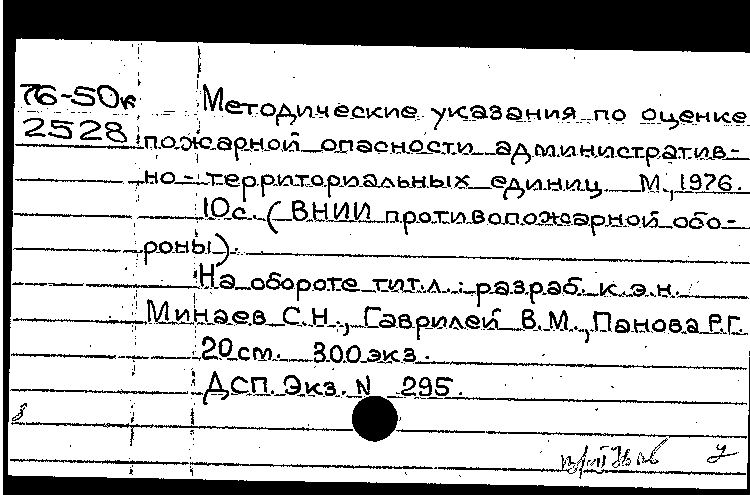 76-50к Методические указания по оценке
2528 пожарной опасности административ-
но-территориальных единиц М., 1976.
10с. (ВНИИ противопожарной обо-
роны).
На обороте тит.л.: разраб. к.э.н.
Минаев С.Н., Гаврилей В.М., Панова Р.Г.
20см. 300экз.
ДСП. Экз. N 295.
8